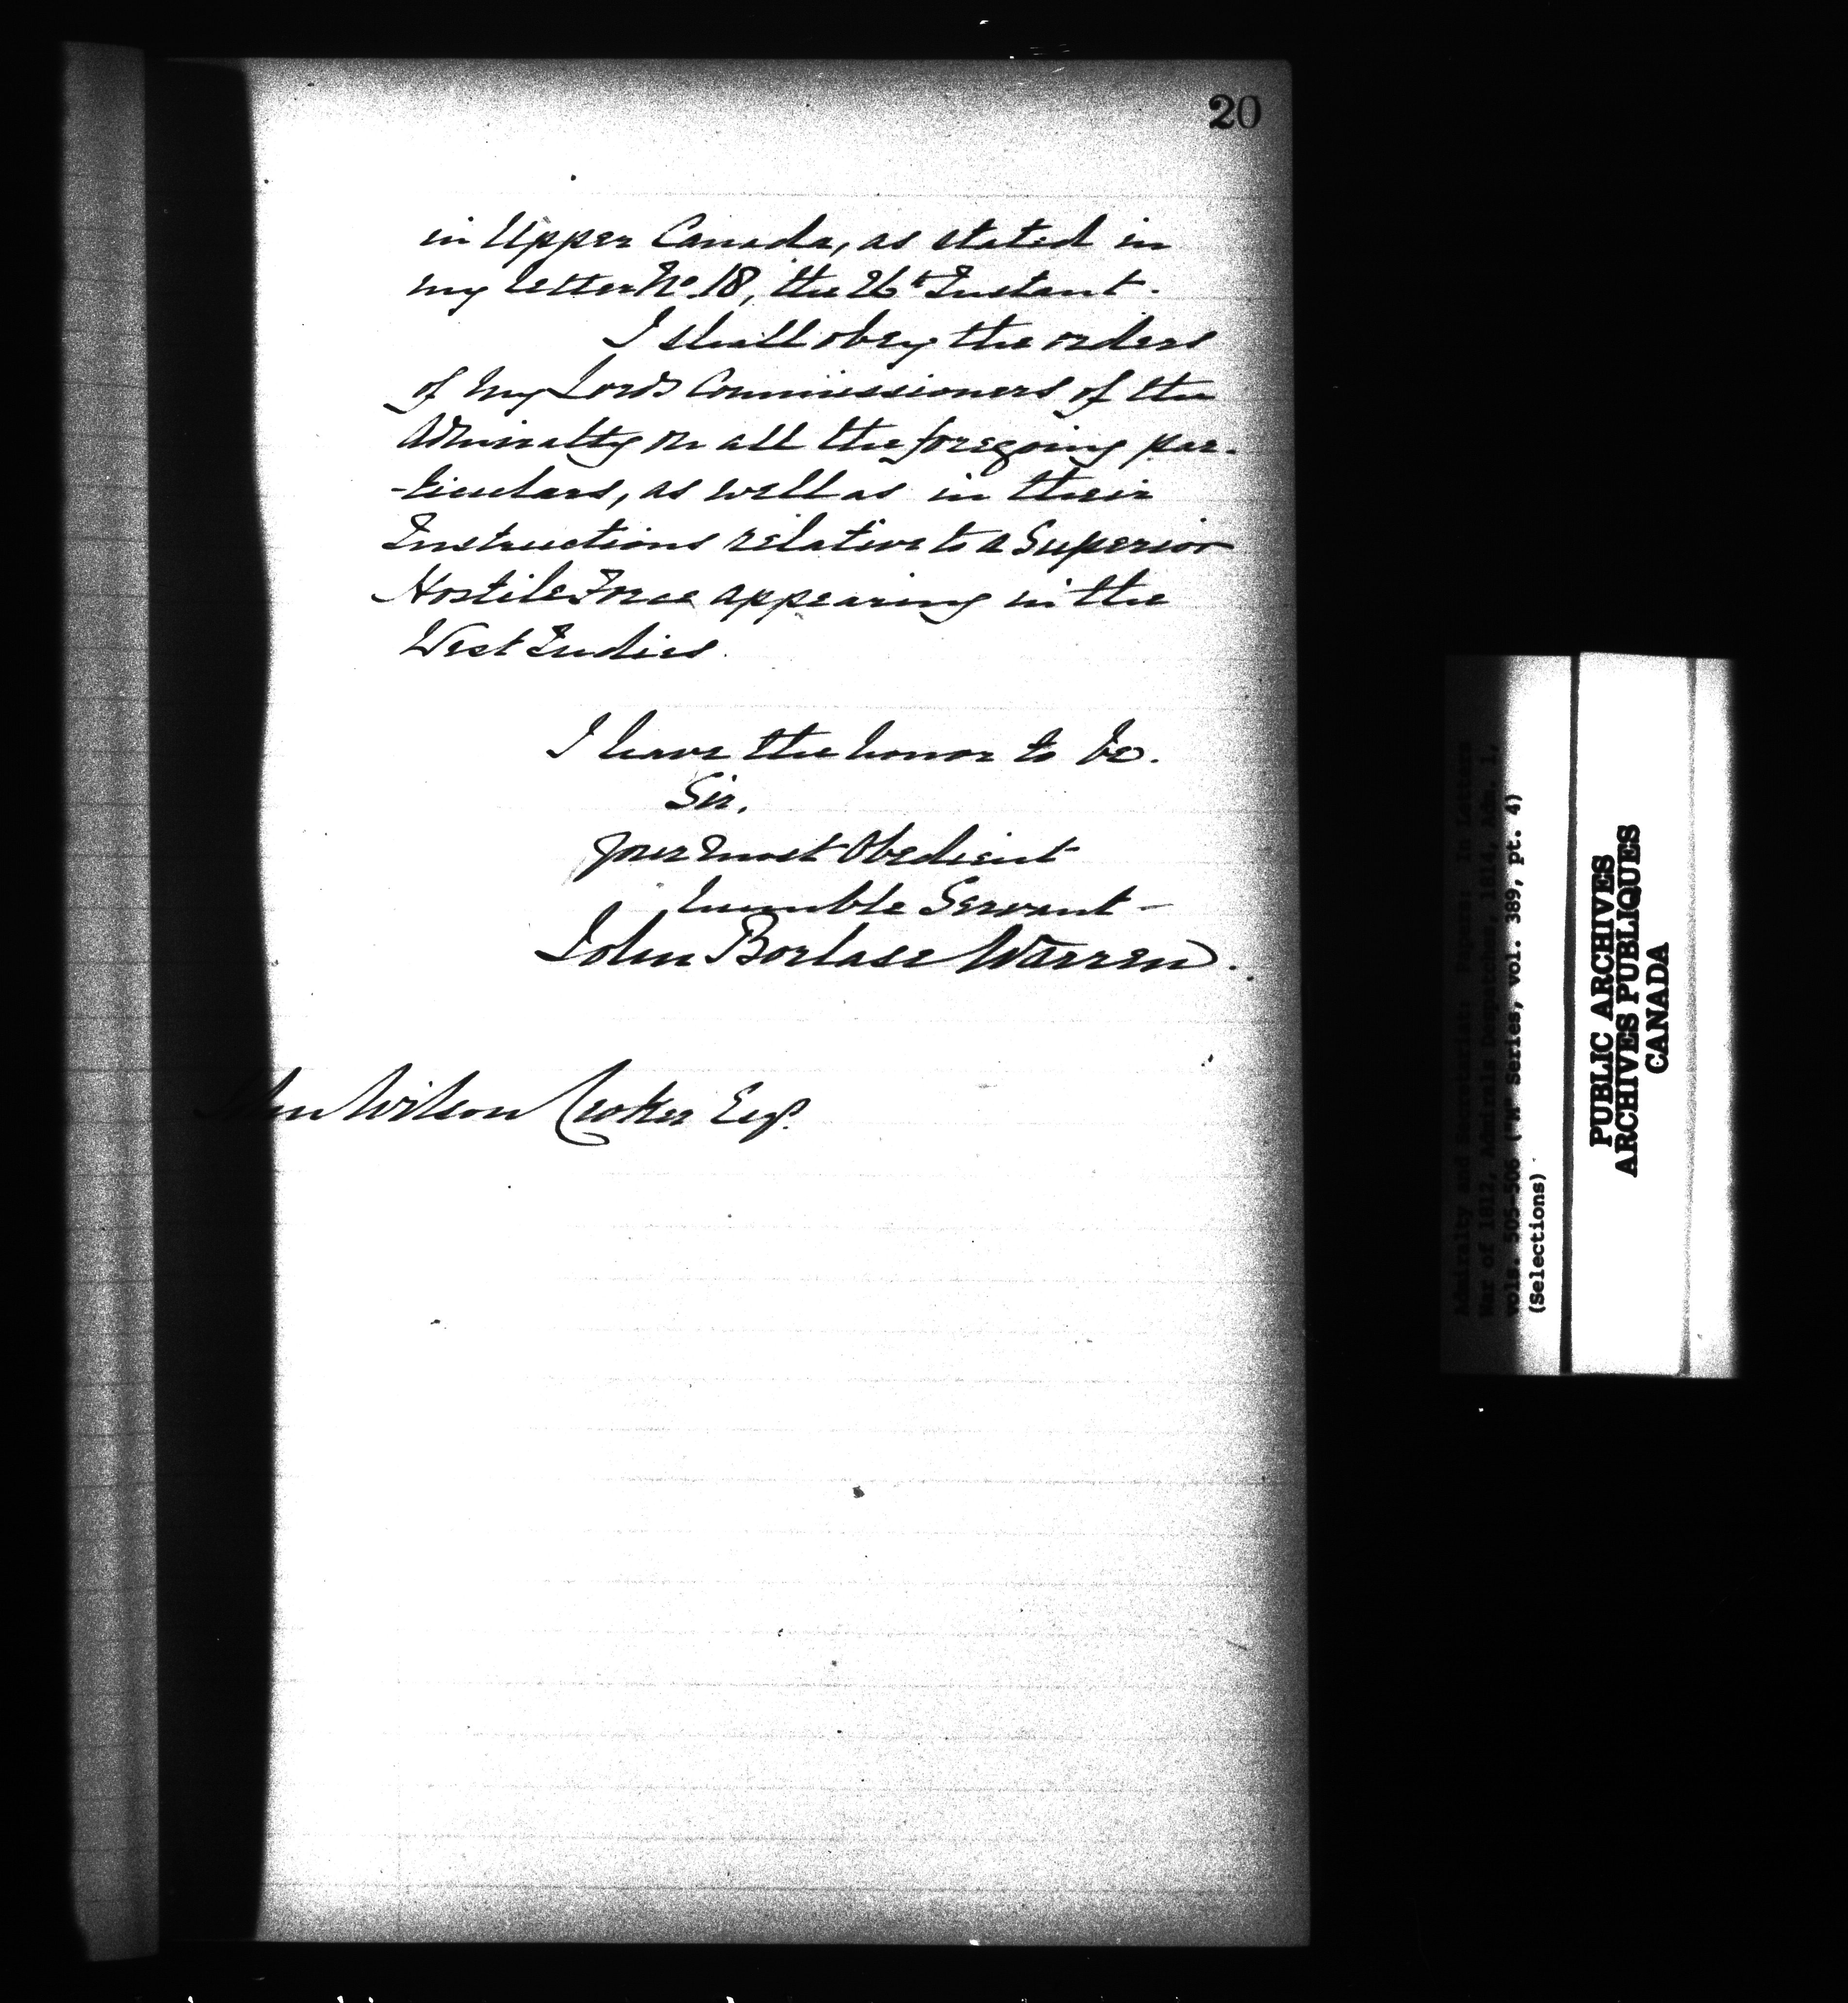 20
in Upper Canada, as stated in
my letter No. 18, the 26th Instant.
I shall obey the orders
of my Lords Commissioners of the
Admiralty on all the foregoing par-
-ticulars, as well as in their
Instructions relative to a Superior
Hostile Force appearing in the
West Indies.
I have the honor to be.
Sir,
your most Obedient
humble Servant -
John Borlase Warren.
John Wilson Croker Esqr.
Admiralty and Secretariat: Papers: In Letters
War of 1812, Admirals Despatches, 1814, Adm. 1,
vols. 505-506 ("M" Series, vol. 389, pt. 4)
(Selections)
PUBLIC ARCHIVES
ARCHIVES PUBLIQUES
CANADA